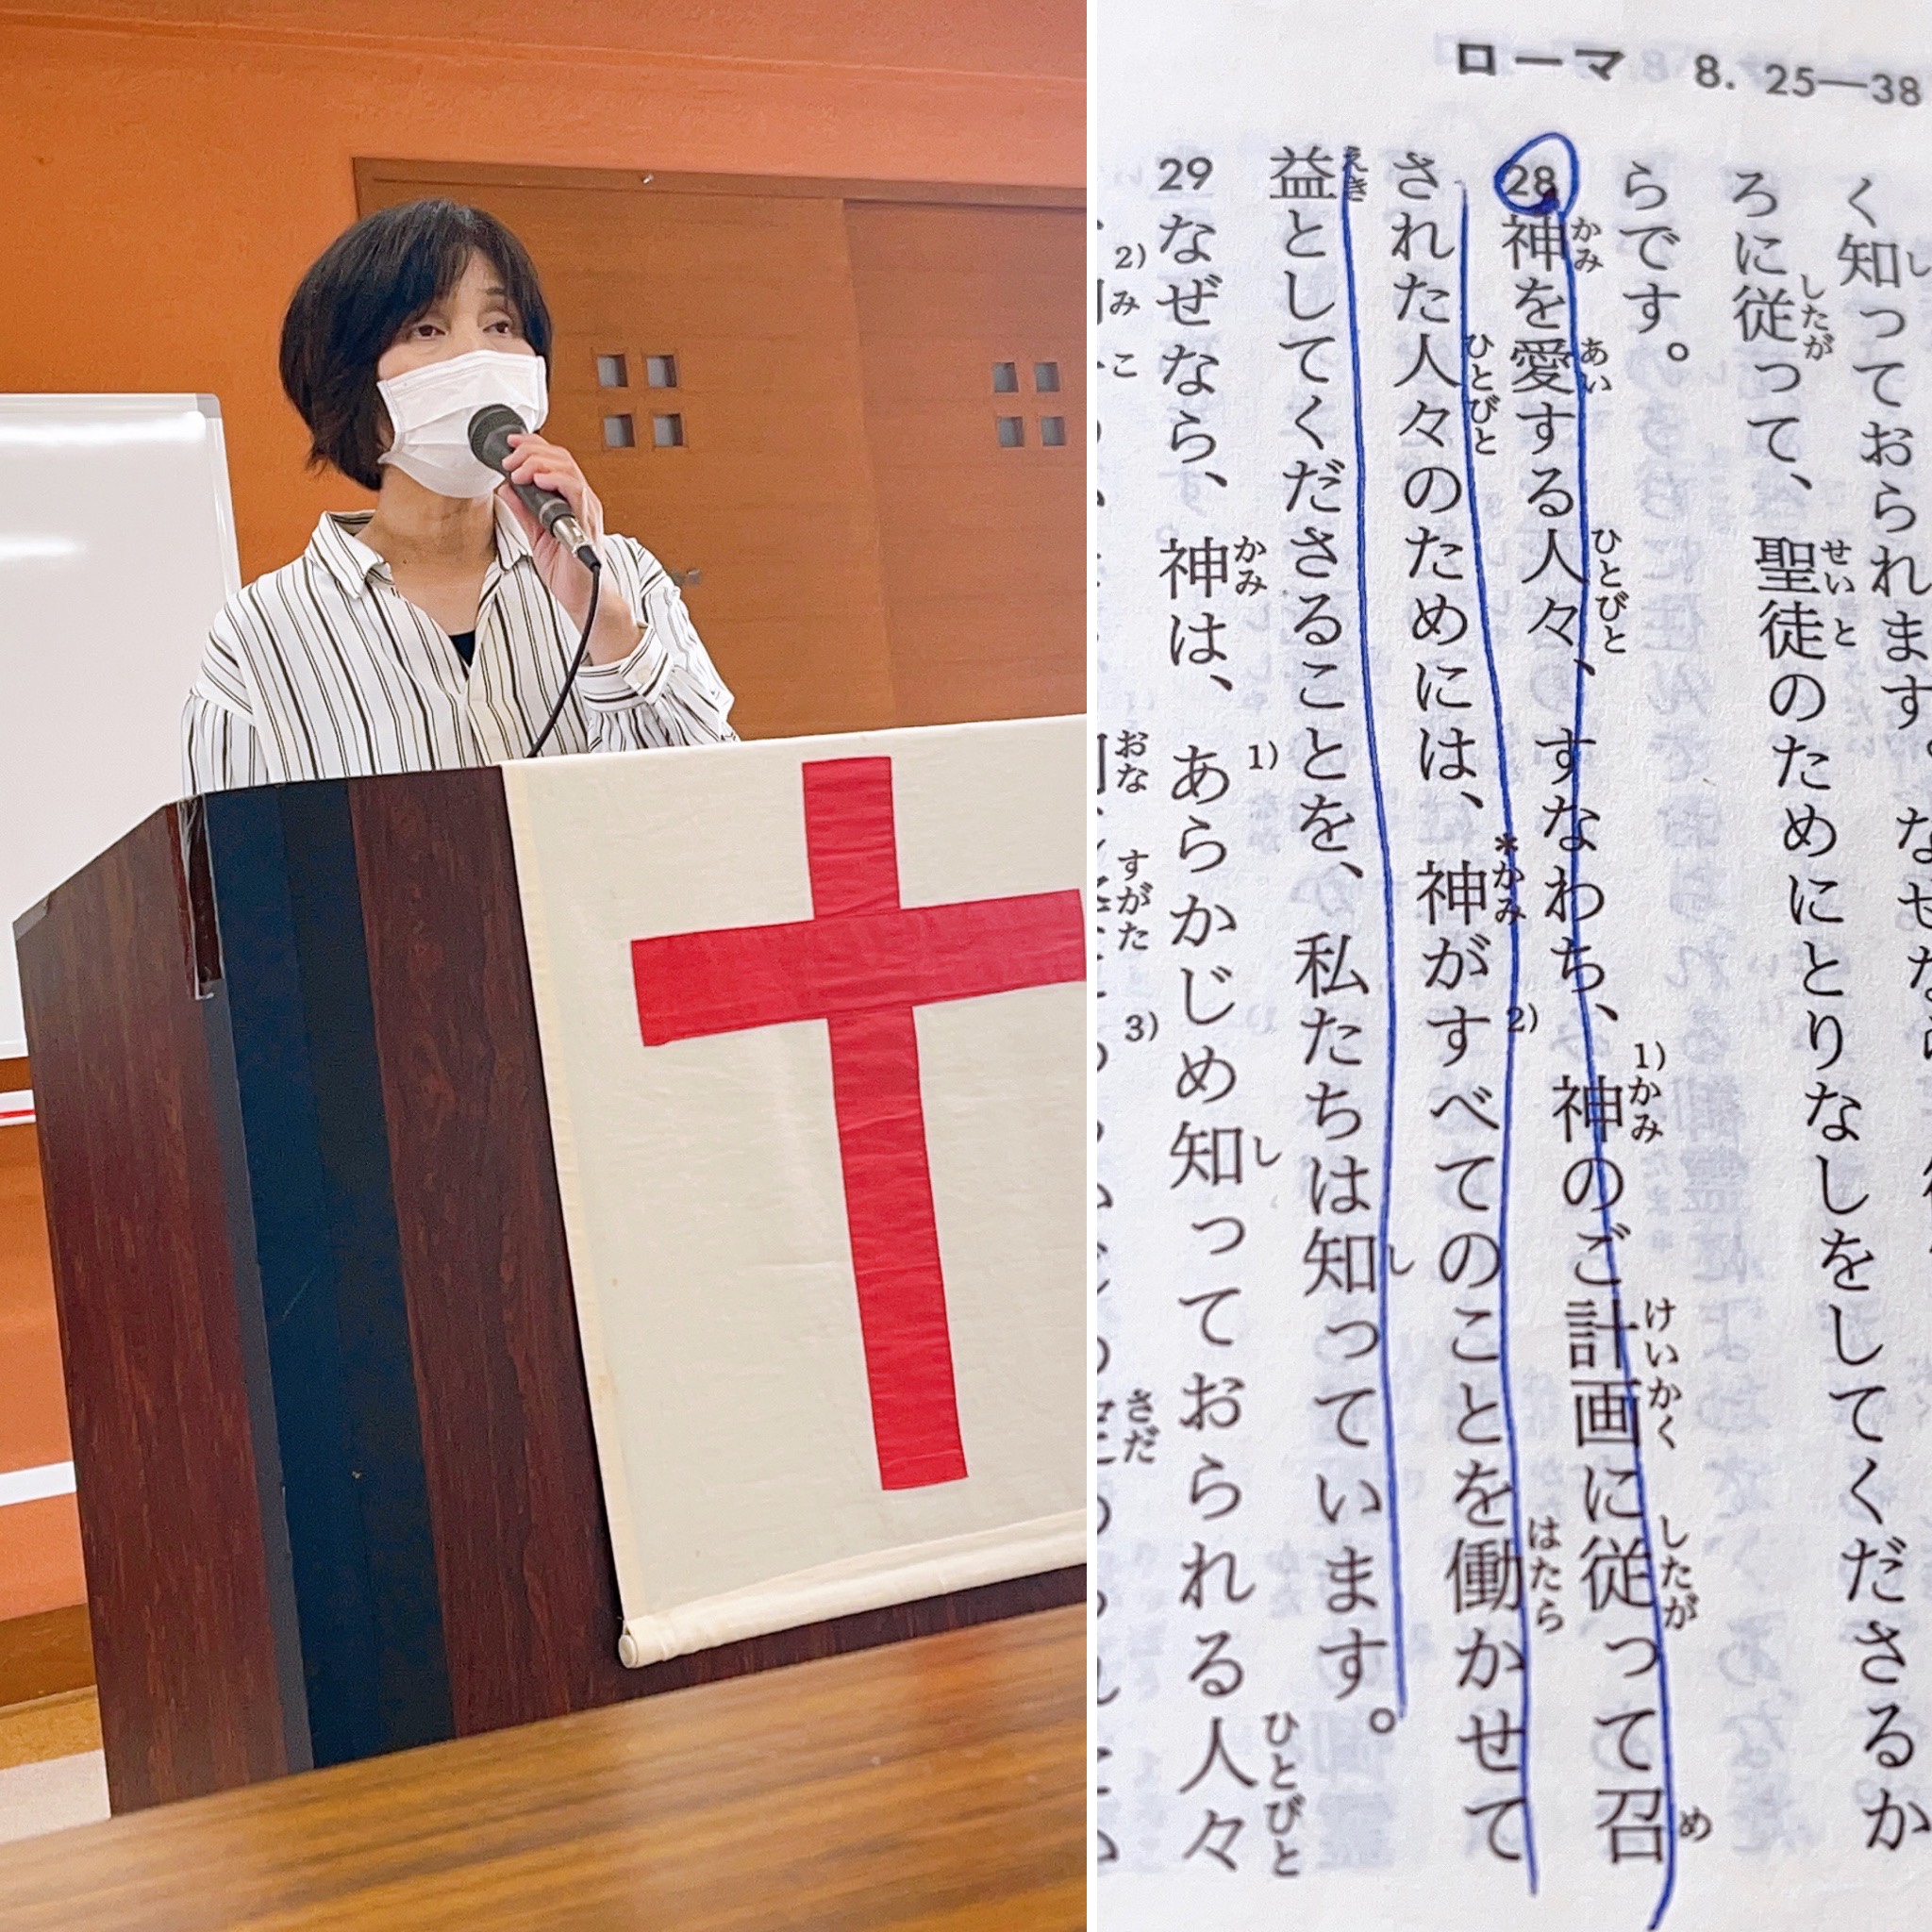 ローマ 8. 25―38
く知っておられます。なぜなら
ろに従って、聖徒のためにとりなしをしてくださるか
らです。
28 神を愛する人々、すなわち、神のご計画に従って召
された人々のためには、神がすべてのことを働かせて
益としてくださることを、私たちは知っています。
29 なぜなら、神は、あらかじめ知っておられる人々